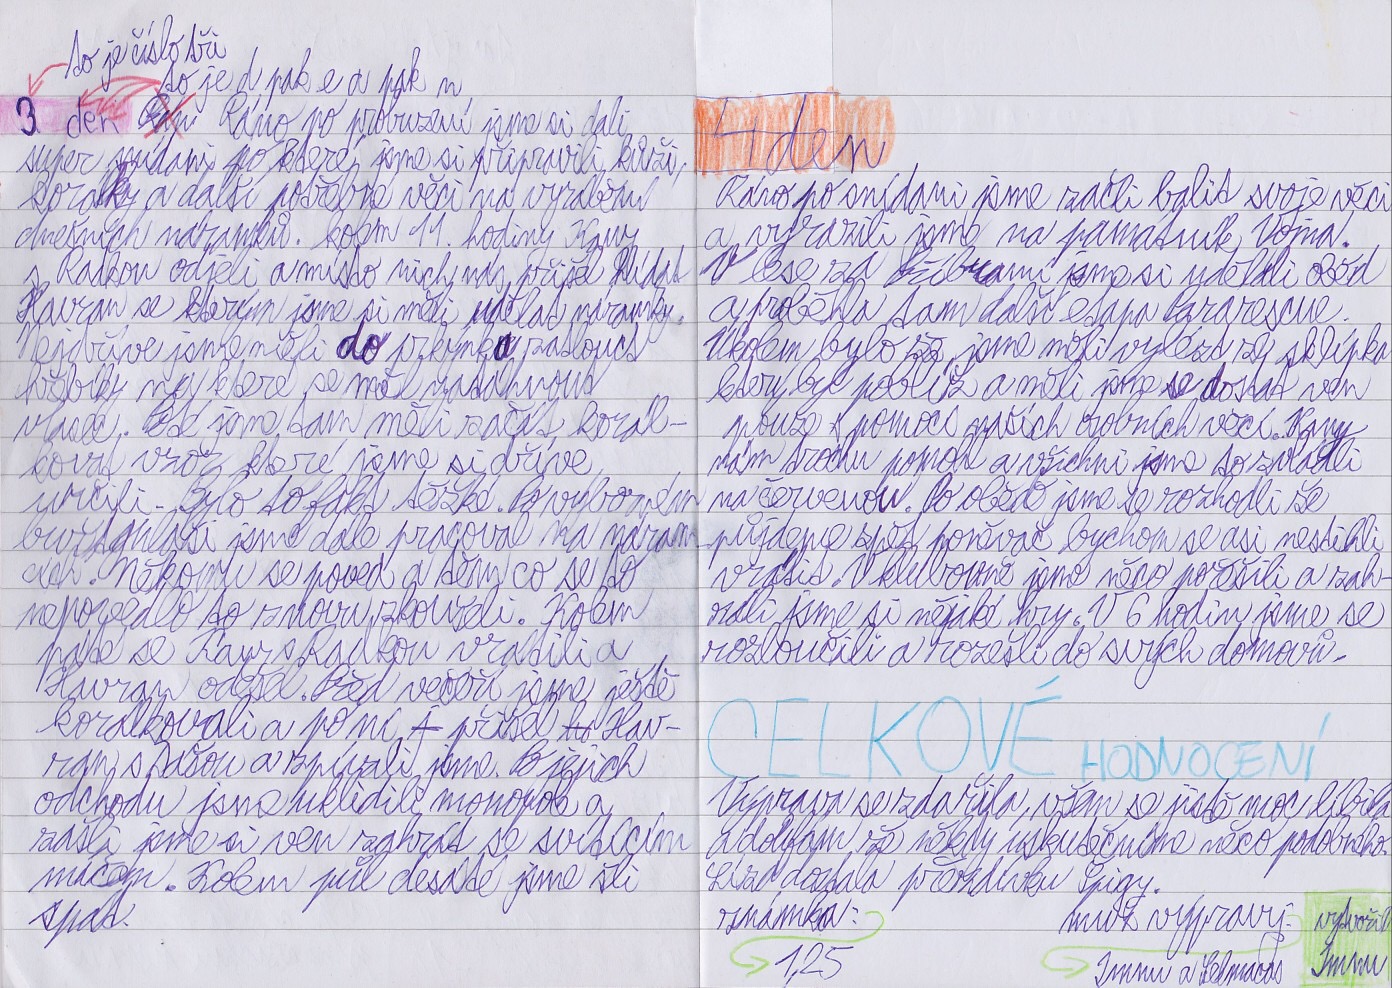 to je číslo tři
to je d pak e a pak n
3. den Ráno po probuzení jsme si dali
super snídani po které jsme si připravili kůži,
korálky a další potřebné věci na vyrábění
dnešních náramků. Kolem 11. hodiny Kavy
s Radkou odjeli a místo nich nás přijel hlídat
Havran se kterým jsme si měli udělat náramky.
Nejdříve jsme měli do prkýnka zatlouct
hřebíky mezi které se měl natáhnout
vlasec. Pak jsme tam měli začít korál-
kovat vzor které jsme si dříve
určili. Bylo to fakt těžké. Po výborném
buřtguláši jsme dále pracoval na náram
cích. Někomu se poved a těm co se to
nepovedlo to znovu zkoušeli. Kolem
páté se Kavy s Radkou vrátili a
Havran odešel. Před večeří jsme ještě
korálkovali a po ní přišel Hav-
ran sÁšou a zpívali jsme. Po jejich
odchodu jsme uklidili monopol a
zašli jsme si ven zahrát se svítícím
míčem. Kolem půl desáté jsme šli
spát.
4 den
Ráno po snídani jsme začli balit svoje věci
a vyrazili jsme na památník Vojna.
V lese za Příbramí jsme si udělali oběd
a proběhla tam další etapa Pararescue.
Úkolem bylo že jsme měli vylézt ze sklípka
který byl poblíž a měli jsme se dostat ven
pouze s pomocí našich osobních věcí. Kavy
nám trochu pomoh a všichni jsme to zvládli
na červenou. Po obědě jsme se rozhodli že
půjdeme zpět poněvač bychom se asi nestihli
vrátit. V klubovně jsme něco pořešili a zah-
ráli jsme si nějaké hry. V 6 hodin jsme se
rozloučili a rozešli do svých domovů.
CELKOVÉ HODNOCENÍ
Výprava se zdařila, všem se jistě moc líbila
a doufám že někdy uskutečníme něco podobného.
dostala přezdívku Špigy.
známka: muž výpravy: vytvořil
1,25 Immu a Immu